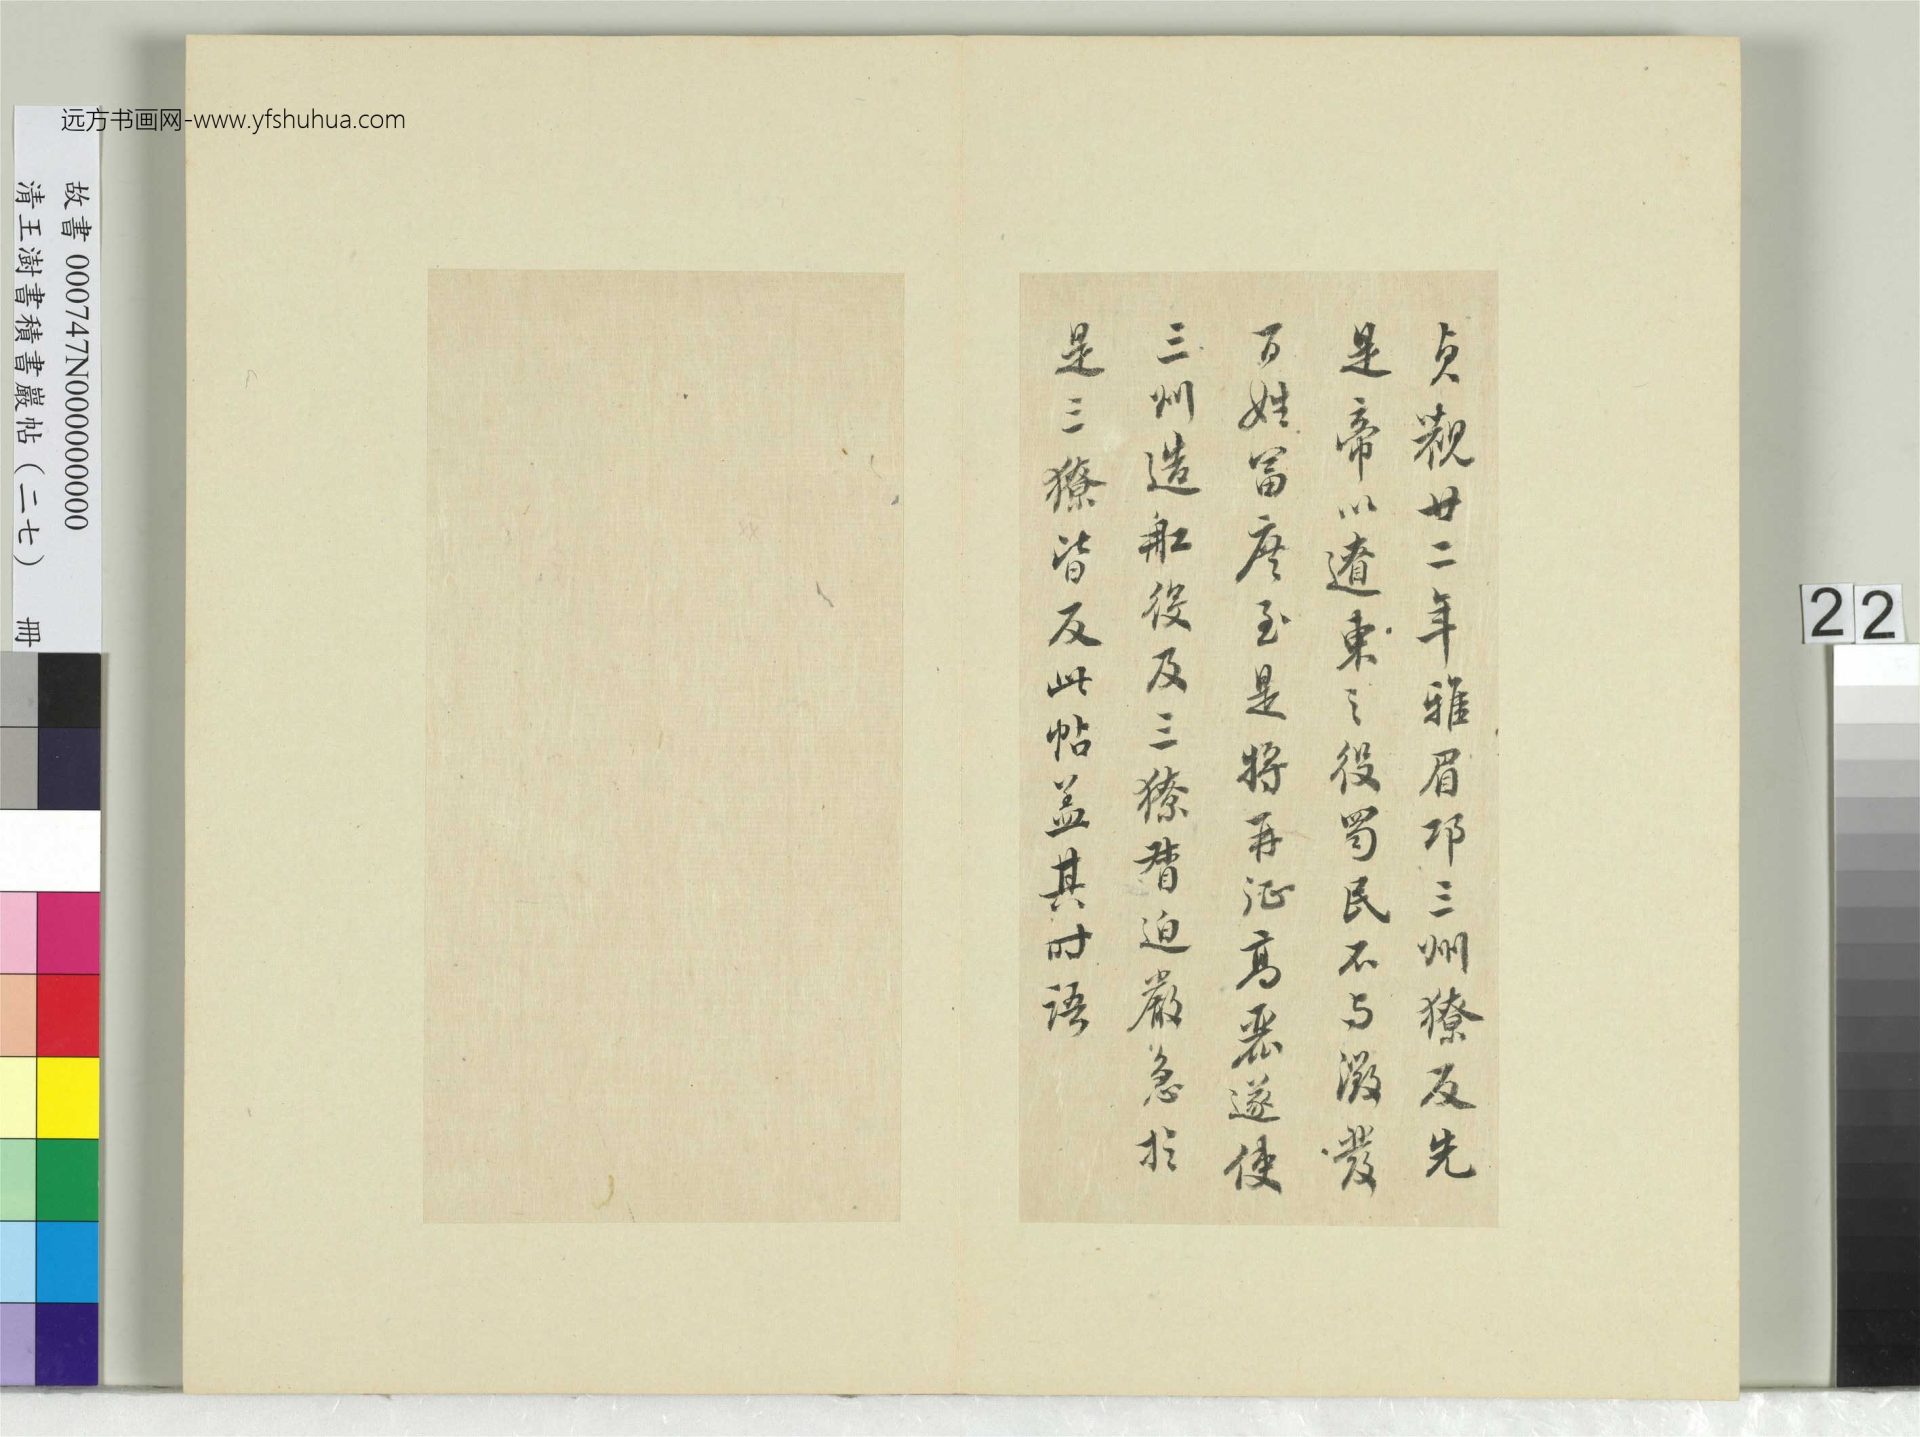 贞觀廿二年雅眉邛三州獠反先
是帝以遼東之役蜀民不与徵發
百姓富庶至是将再征髙麗遂使
三州造舡役及三獠督迫嚴急扵
是三獠皆反此帖盖其时语
远方书画网-www.yfshuhua.com
故書 000747N000000000
清王澍書積書巖帖（二七） 冊
22